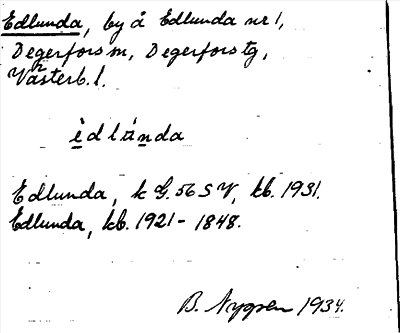 Edlunda, by å Edlunda nr 1,
Degerfors sn, Degerfors tg,
Västerb. l.
èdlúnda
Edlunda, k G. 56 SV, kb. 1931.
Edlunda, kb. 1921-1848.
B. Nygren 1934.